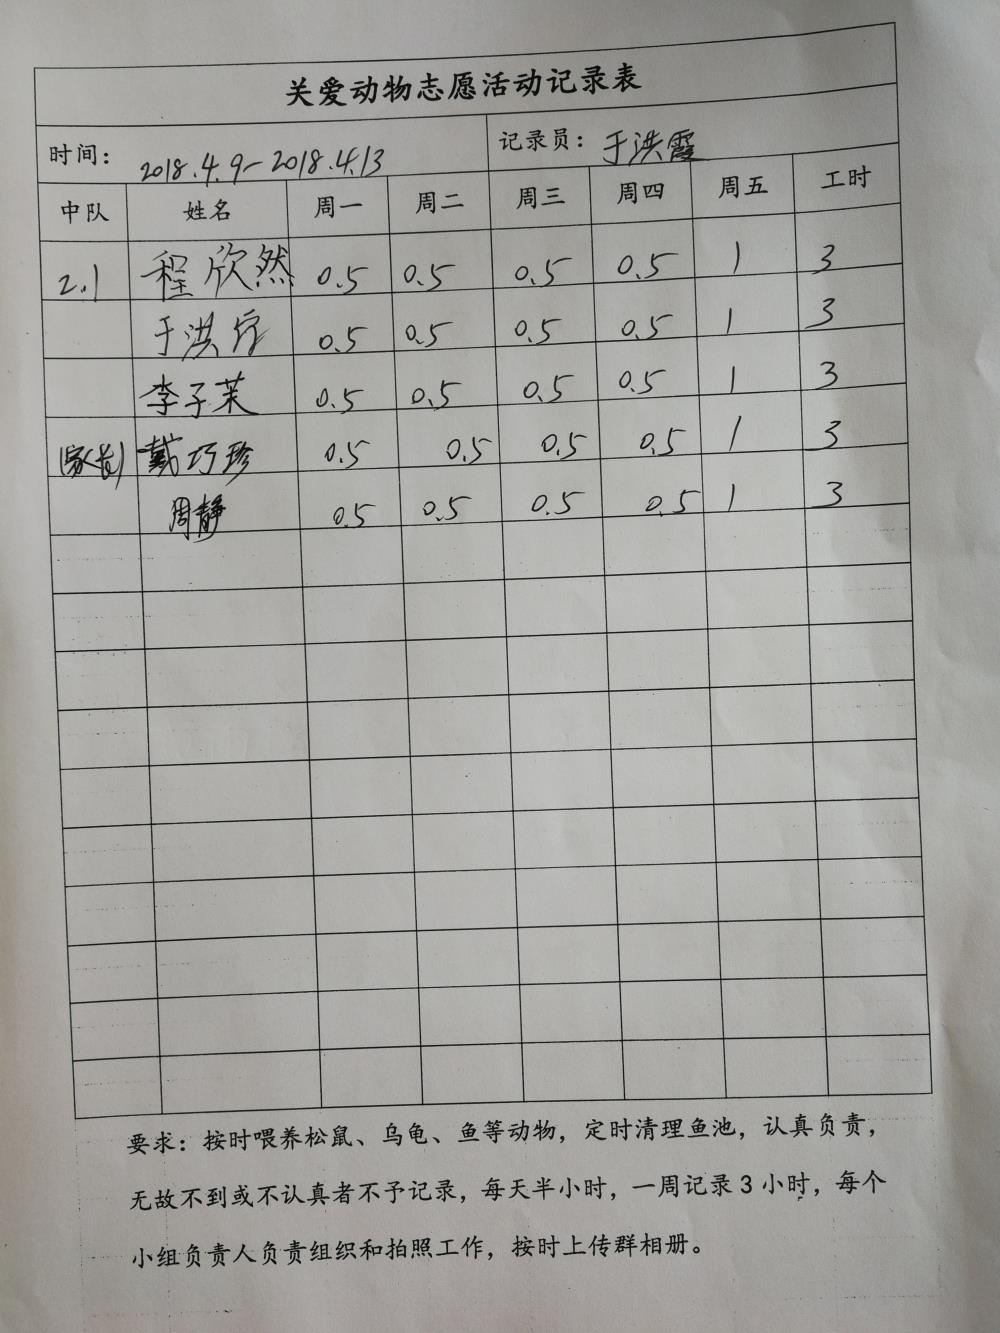 关爱动物志愿活动记录表
时间： 2018.4.9-2018.4.13 记录员： 于洪霞
中队 姓名 周一 周二 周三 周四 周五 工时
2.1 程欣然 0.5 0.5 0.5 0.5 1 3
于洪 0.5 0.5 0.5 0.5 1 3
李子茉 0.5 0.5 0.5 0.5 1 3
(家长) 戴巧珍 0.5 0.5 0.5 0.5 1 3
周静 0.5 0.5 0.5 0.5 1 3
要求：按时喂养松鼠、乌龟、鱼等动物，定时清理鱼池，认真负责，
无故不到或不认真者不予记录，每天半小时，一周记录3小时，每个
小组负责人负责组织和拍照工作，按时上传群相册。